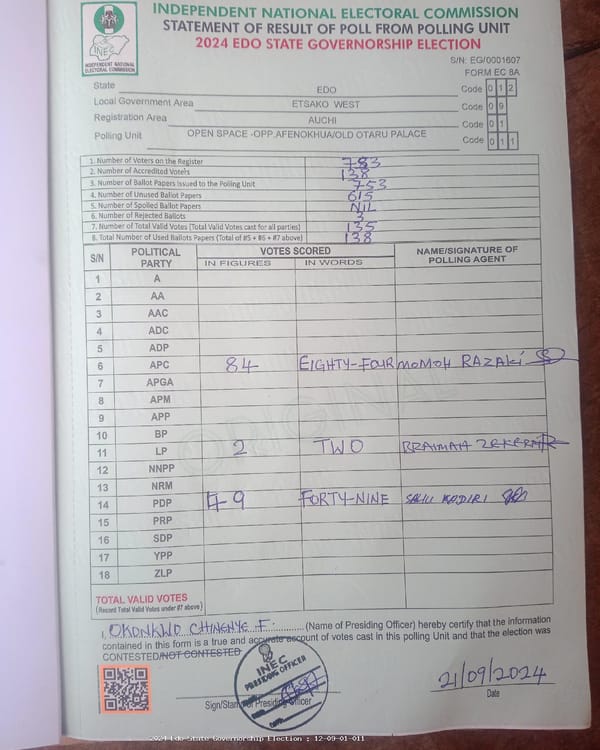 INDEPENDENT NATIONAL ELECTORAL COMMISSION
STATEMENT OF RESULT OF POLL FROM POLLING UNIT
2024 EDO STATE GOVERNORSHIP ELECTION
INEC
INDEPENDENT NATIONAL
ELECTORAL COMMISSION
S/N: EG/0001607
FORM EC 8A
State EDO Code 0 1 2
Local Government Area ETSAKO WEST Code 0 9
Registration Area AUCHI Code 0 1
Polling Unit OPEN SPACE -OPP.AFENOKHUA/OLD OTARU PALACE Code 0 1 1
1. Number of Voters on the Register 783
2. Number of Accredited Voters 138
3. Number of Ballot Papers Issued to the Polling Unit 753
4. Number of Unused Ballot Papers 615
5. Number of Spoiled Ballot Papers NIL
6. Number of Rejected Ballots 3
7. Number of Total Valid Votes (Total Valid Votes cast for all parties) 135
8. Total Number of Used Ballots Papers (Total of #5 + #6 + #7 above) 138
S/N POLITICAL PARTY VOTES SCORED NAME/SIGNATURE OF POLLING AGENT
IN FIGURES IN WORDS
1 A
2 AA
3 AAC
4 ADC
5 ADP
6 APC 84 EIGHTY-FOUR MOMOH RAZAKI
7 APGA
8 APM
9 APP
10 BP
11 LP 2 TWO BRAIMAH
12 NNPP
13 NRM
14 PDP 49 FORTY-NINE SALIU KADIRI
15 PRP
16 SDP
17 YPP
18 ZLP
ORIGINAL
TOTAL VALID VOTES
(Record Total Valid Votes under #7 above)
I, OKONKWO CHINENYE F. (Name of Presiding Officer) hereby certify that the information
contained in this form is a true and accurate account of votes cast in this polling Unit and that the election was
CONTESTED/NOT CONTESTED
INEC
PRESIDING OFFICER
Sign/Stamp of Presiding Officer
21/09/2024
Date
2024 Edo State Governorship Election : 12-09-01-011